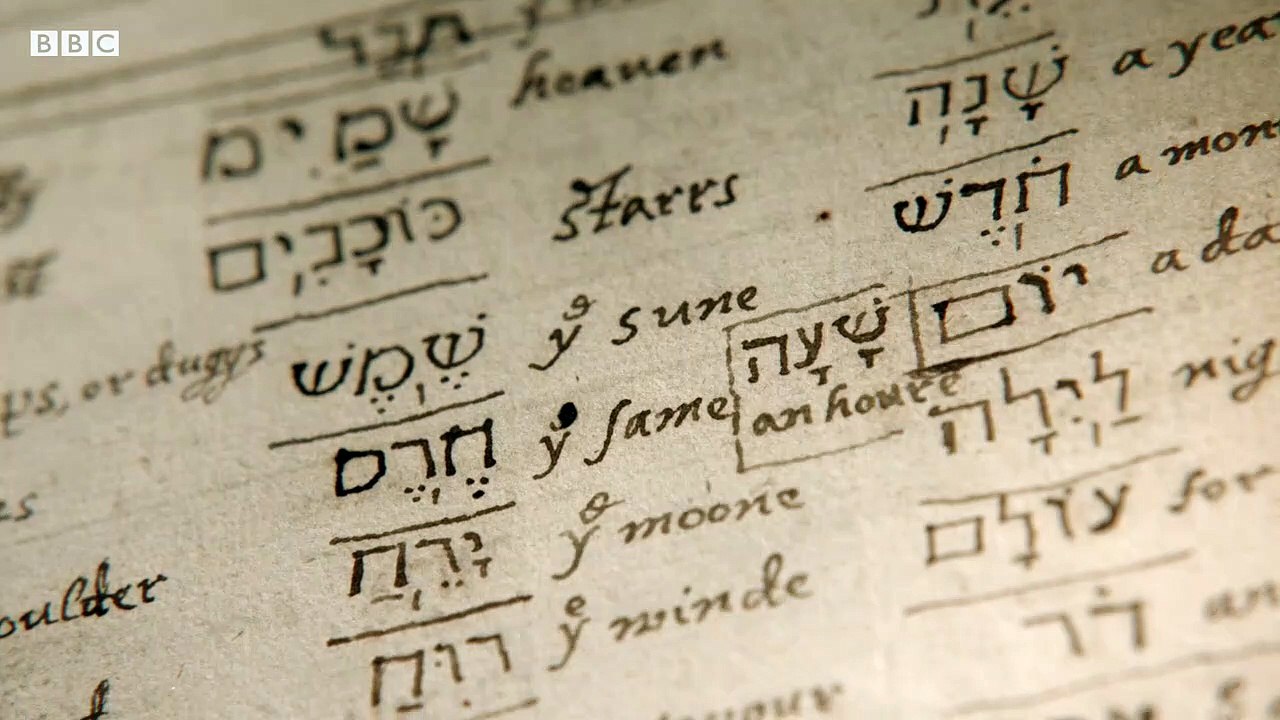 BBC
תבל
שָׁמַיִמ heaven
כּוֹכָבִים starrs
ps, or dugys שֶׁמֶשׁ yᵉ sune
חֶרֶס yᵉ same
יָרֵחַ yᵉ moone
oulder רוּחַ yᵉ winde
שָׁנָה a yea
חֹדֶשׁ a mon
יוֹם a da
שָׁעָה
an houre
לַיְלָה nig
עוֹלָם for
דֹר an